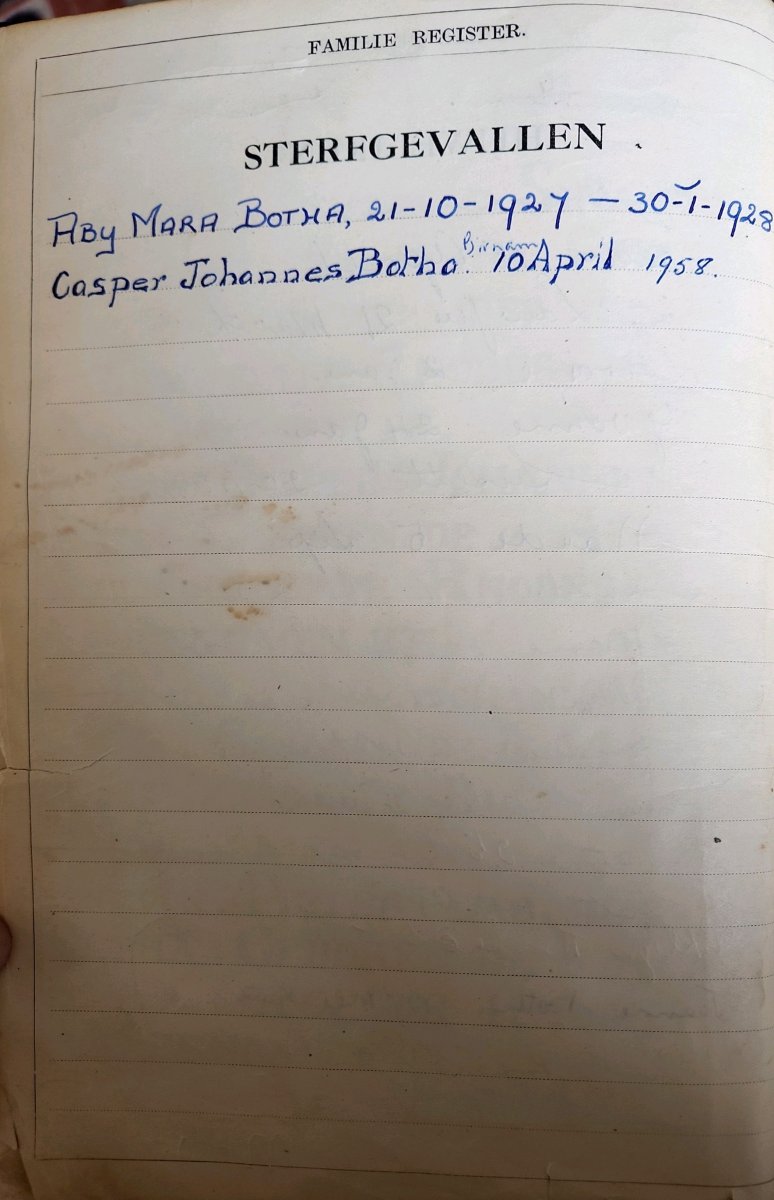 FAMILIE REGISTER.
STERFGEVALLEN
ABy MARA BOTHA, 21-10-1927 — 30-1-1928
Birnam
Casper Johannes Botha. 10 April 1958.